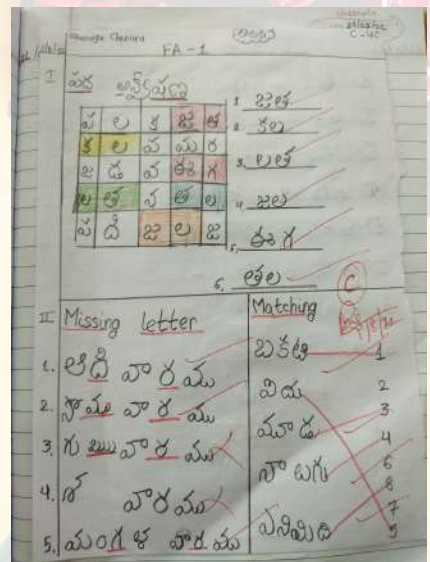 FA-1
I పద అన్వేషణ
ప ల క జ త
క ల ప మ ర
జ డ వ ఈ గ
ల త వ త ల
ప ది జ ల జ
1. జత
2. కల
3. లత
4. జల
5. ఈగ
6. తల
C
II Missing letter
1. ఆది వారము
2. సోమ వారము
3. గు ఋ వారము
4. వారము
5. మంగళ వారము
Matching
ఒకటి 1
ఐదు 2
మూడు 3
నాలుగు 4
6
8
ఎనిమిది 7
5